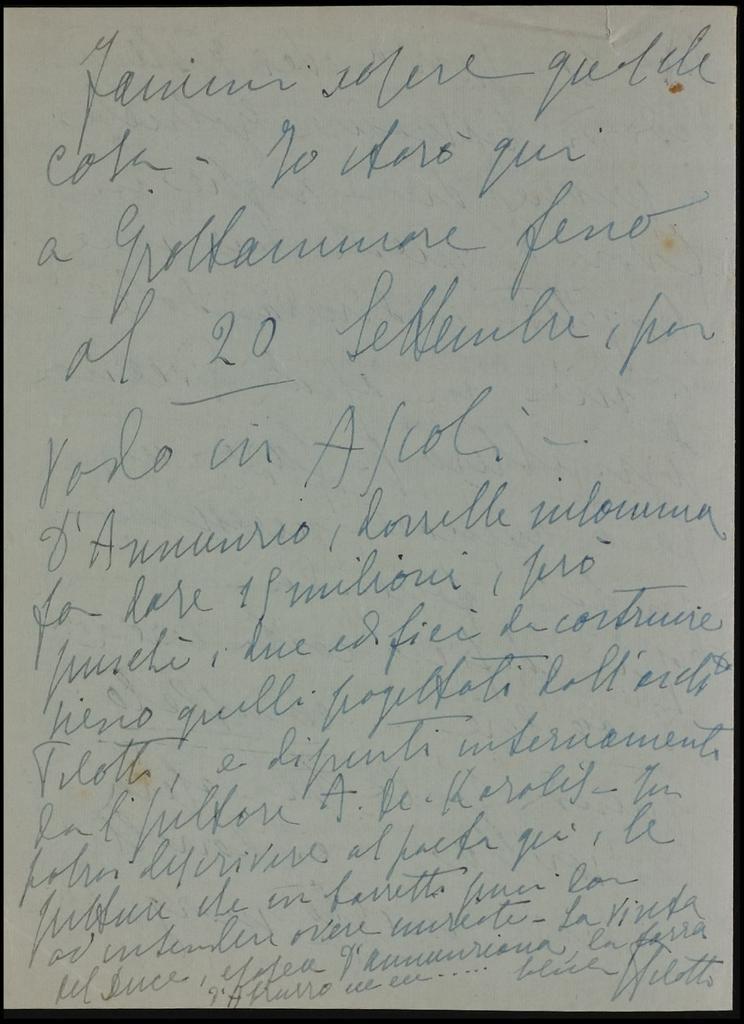 Fammi sapere qualche
cosa - Io starò qui
a Grottammare fino
al 20 Settembre, poi
vado in Ascoli -
D'Annunzio, dovrebbe insomma
far dare 15 milioni, però
purchè, due edifici da costruire
sieno quelli progettati dall'archto
Pilotti, e dipinti internamente
dal pittore A. De-Karolis - Tu
potrai descrivere al poeta qui, le
pitture che in
ad intendere - La visita
del Duce, d'annunziana, la
d'Abruzzo ecc ecc.....
Pilotti